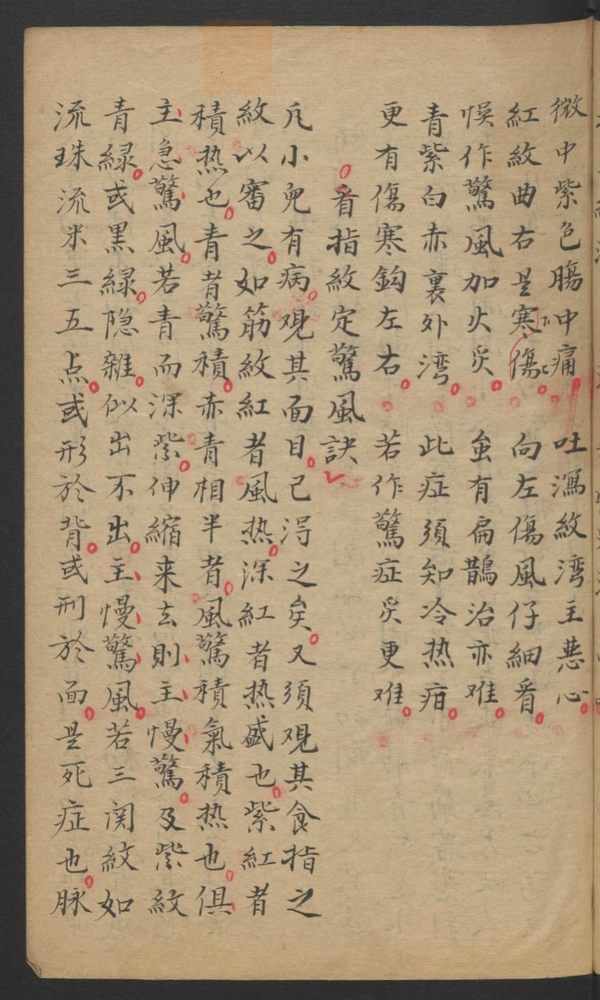 微中紫色腸中痛 吐瀉紋湾主恶心
紅紋曲右是寒傷 向左傷風仔細看
悮作驚風加火炙 虽有扁鵲治亦难
青紫白赤裏外湾 此症須知冷热疳
更有傷寒鈎左右 若作驚症炙更难
看指紋定驚風訣
凡小兒有病观其面目已淂之矣又須观其食指之
紋以審之如筋紋紅者風热深紅者热盛也紫紅者
積热也青者驚積赤青相半者風驚積氣積热也俱
主急驚風若青而深紫伸縮来去則主慢驚及紫紋
青緑或黑緑隐雜似出不出主慢驚風若三関紋如
流珠流米三五点或形於背或刑於面是死症也脉